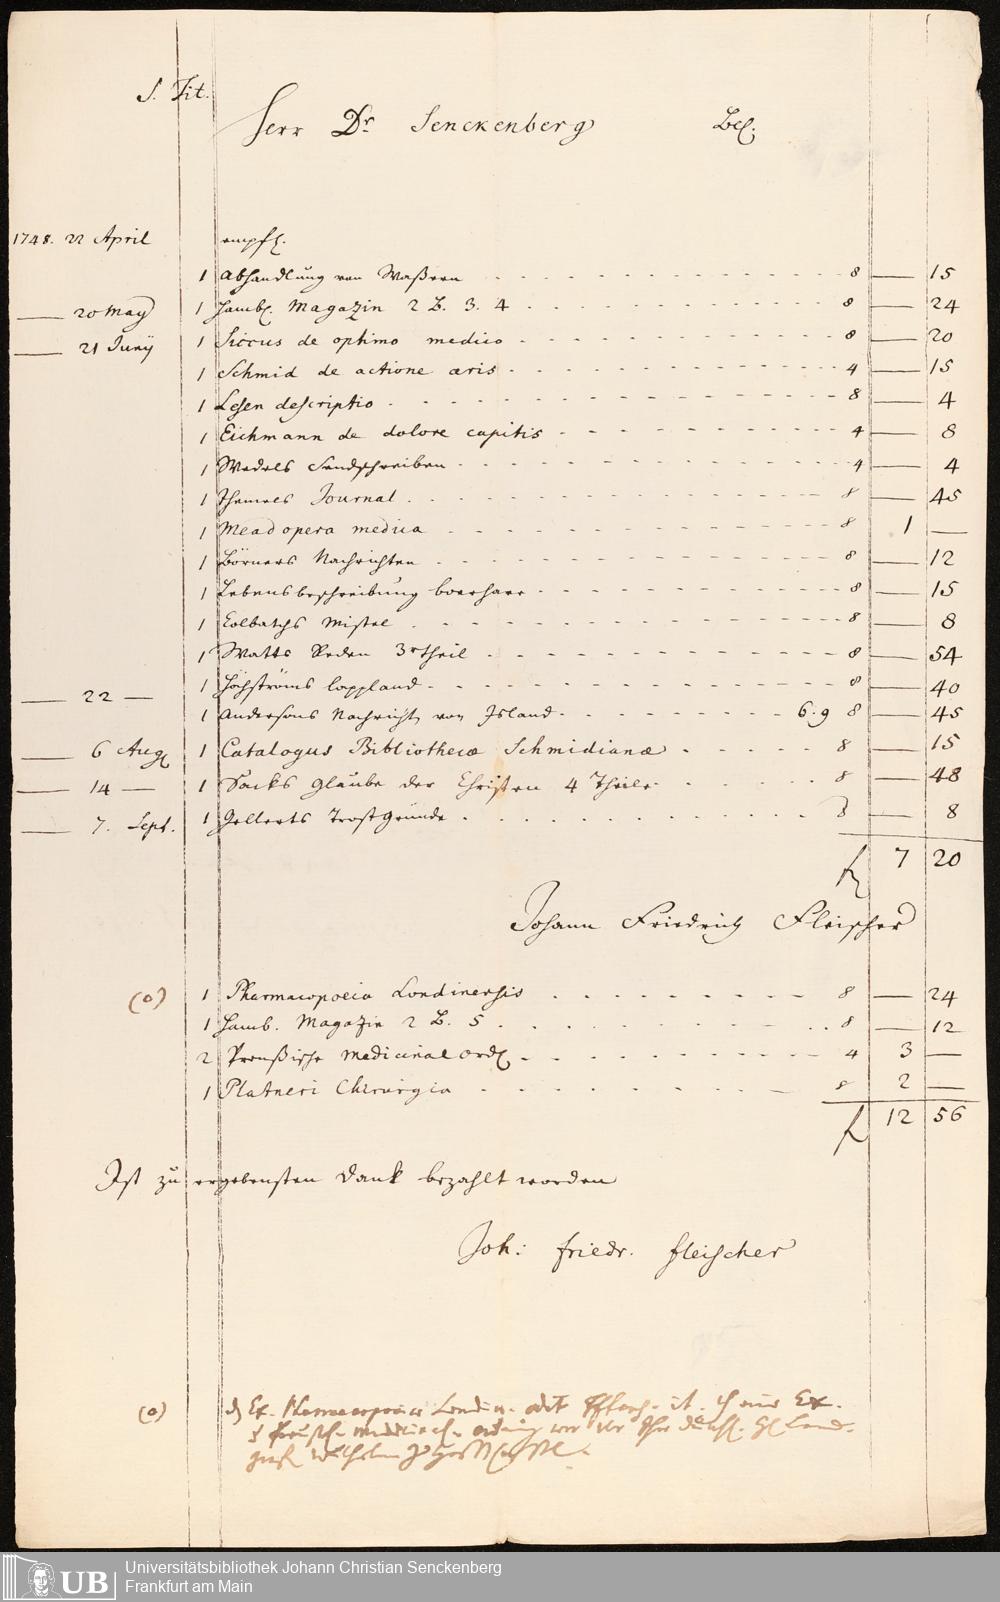 S. Tit.
Herr Dr Senckenberg
1748. 22 April empf.
1 Abhandlung von Waßern 8 — 15
— 20 May 1 Hamb. Magazin 2 B. 3. 4 8 — 24
— 21 Junÿ 1 Siccus de optimo medico 8 — 20
1 Schmid de actione aeris 4 — 15
1 Lesen descriptio 8 — 4
1 Eichmann de dolore capitis 4 — 8
1 Wedels Sendschreiben 4 — 4
1 Themels Journal 8 — 45
1 Mead opera medica 8 1 —
1 Börners Nachrichten 8 — 12
1 Lebensbeschreibung boerhave 8 — 15
1 Colbatchs Mistel 8 — 8
1 Watts Reden 3r theil 8 — 54
— 22 — 1 Höchströms lappland 8 — 40
1 Andersons Nachricht von Island 8 — 45
— 6 Aug 1 Catalogus Bibliothecæ Schmidianæ 8 — 15
— 14 — 1 Sacks Glaube der Christen 4 Theile 8 — 48
— 7. Sept. 1 Gellerts Trostgründe 8 — 8
f 7 20
Johann Friedrich Fleischer
(o) 1 Pharmacopoeia Londinensis 8 — 24
1 Hamb. Magazin 2 B. 5 8 — 12
2 Preußische Medicinal ord 4 3 —
1 Platneri Chirurgia 8 2 —
f 12 56
Ist zu ergebensten Dank bezahlt worden
Joh: Friedr. Fleischer
(o) Ex. Pharmacopoeiae Londin.
Universitätsbibliothek Johann Christian Senckenberg
Frankfurt am Main
UB